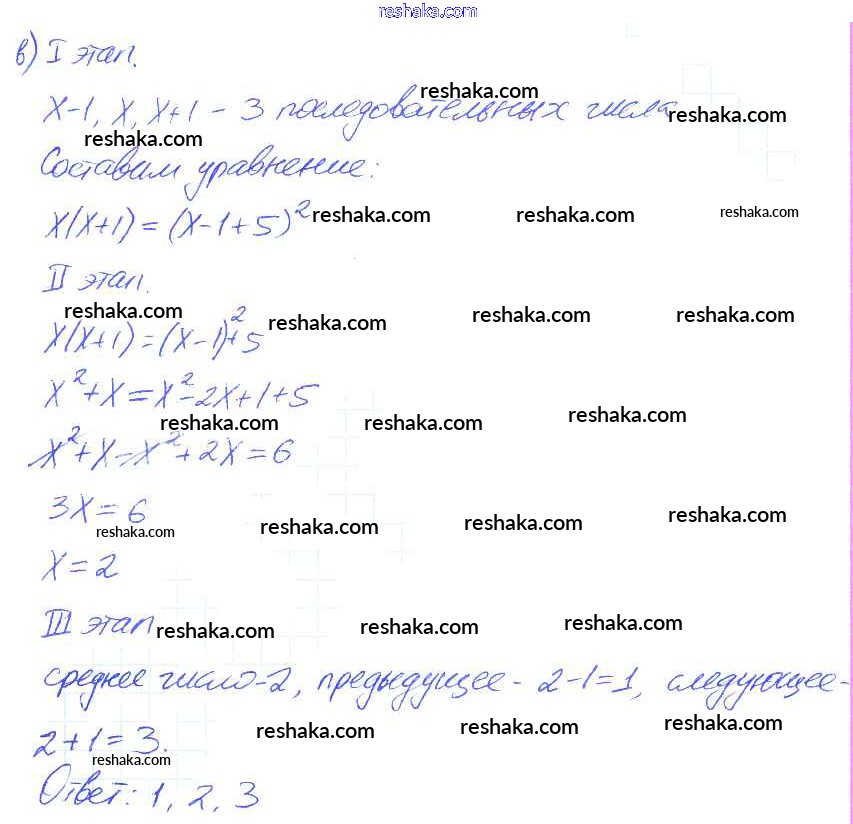 reshaka.com
в) I этап.
reshaka.com
x-1, x, x+1 - 3 последовательных числа
reshaka.com
reshaka.com
Составим уравнение:
x(x+1) = (x-1+5)² reshaka.com reshaka.com reshaka.com
II этап.
reshaka.com reshaka.com reshaka.com reshaka.com
x(x+1) = (x-1)²+5
x²+x = x²-2x+1+5
reshaka.com reshaka.com reshaka.com
x²+x-x²+2x=6
3x=6
reshaka.com reshaka.com reshaka.com reshaka.com
x=2
III этап reshaka.com reshaka.com reshaka.com
среднее число-2, предыдущее - 2-1=1, следующее-
2+1=3. reshaka.com reshaka.com reshaka.com
reshaka.com
Ответ: 1, 2, 3